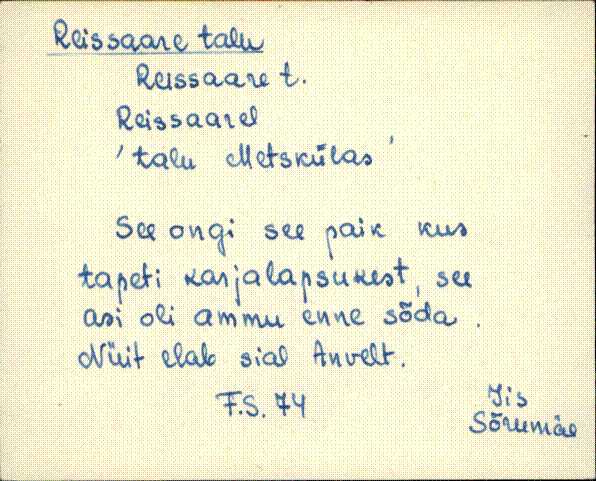 Reissaare talu
Reissaare t.
Reissaarel
'talu Metskülas'
See ongi see paik kus
tapeti karjalapsukest, see
asi oli ammu enne sõda.
Nüit elab sial Anvelt.
F.S. 74
Jis
Sõrumäe